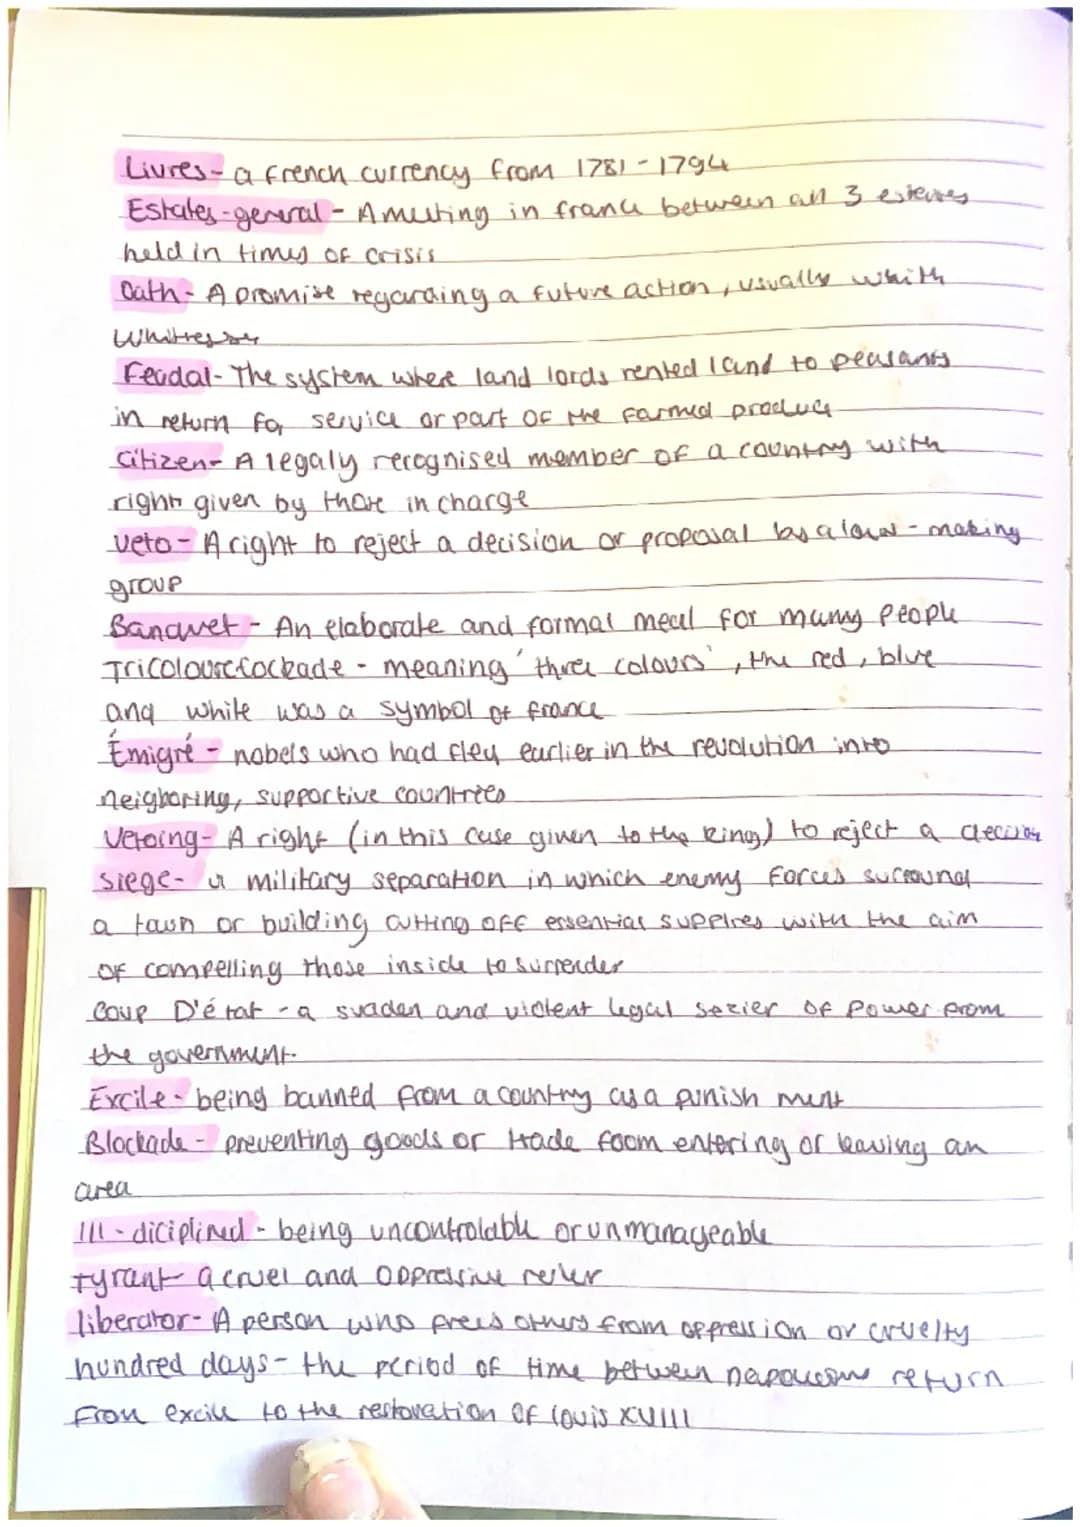 Livres - a french currency from 1781 - 1794
Estates-general - A meeting in france between all 3 estates
held in times of crisis
Oath - A promise regarding a future action, usually whith
Feudal - The system where land lords rented land to peasants
in return for service or part of the farmed produce
Citizen - A legaly recognised member of a country with
right given by those in charge
Veto - A right to reject a decision or proposal by a law-making
group
Banquet - An elaborate and formal meal for many people
Tricolour cockade - meaning 'three colours', the red, blue
and white was a symbol of france
Émigré - nobels who had fley earlier in the revolution into
neighboring, supportive countries
Vetoing - A right (in this case given to the king) to reject a decision
siege - a military separation in which enemy forces surround
a town or building cutting off essential supplies with the aim
of compelling those inside to surrender
Coup D'état - a sudden and violent legal sezier of power from
the government.
Excile - being banned from a country as a punish ment
Blockade - preventing goods or trade from entering or leaving an
area
Ill-diciplined - being uncontrolable or unmanageable
tyrant - a cruel and oppressive ruler
liberator - A person who frees others from oppression or cruelty
hundred days - the period of time between napoleons return
from excile to the restoration of louis XVIII